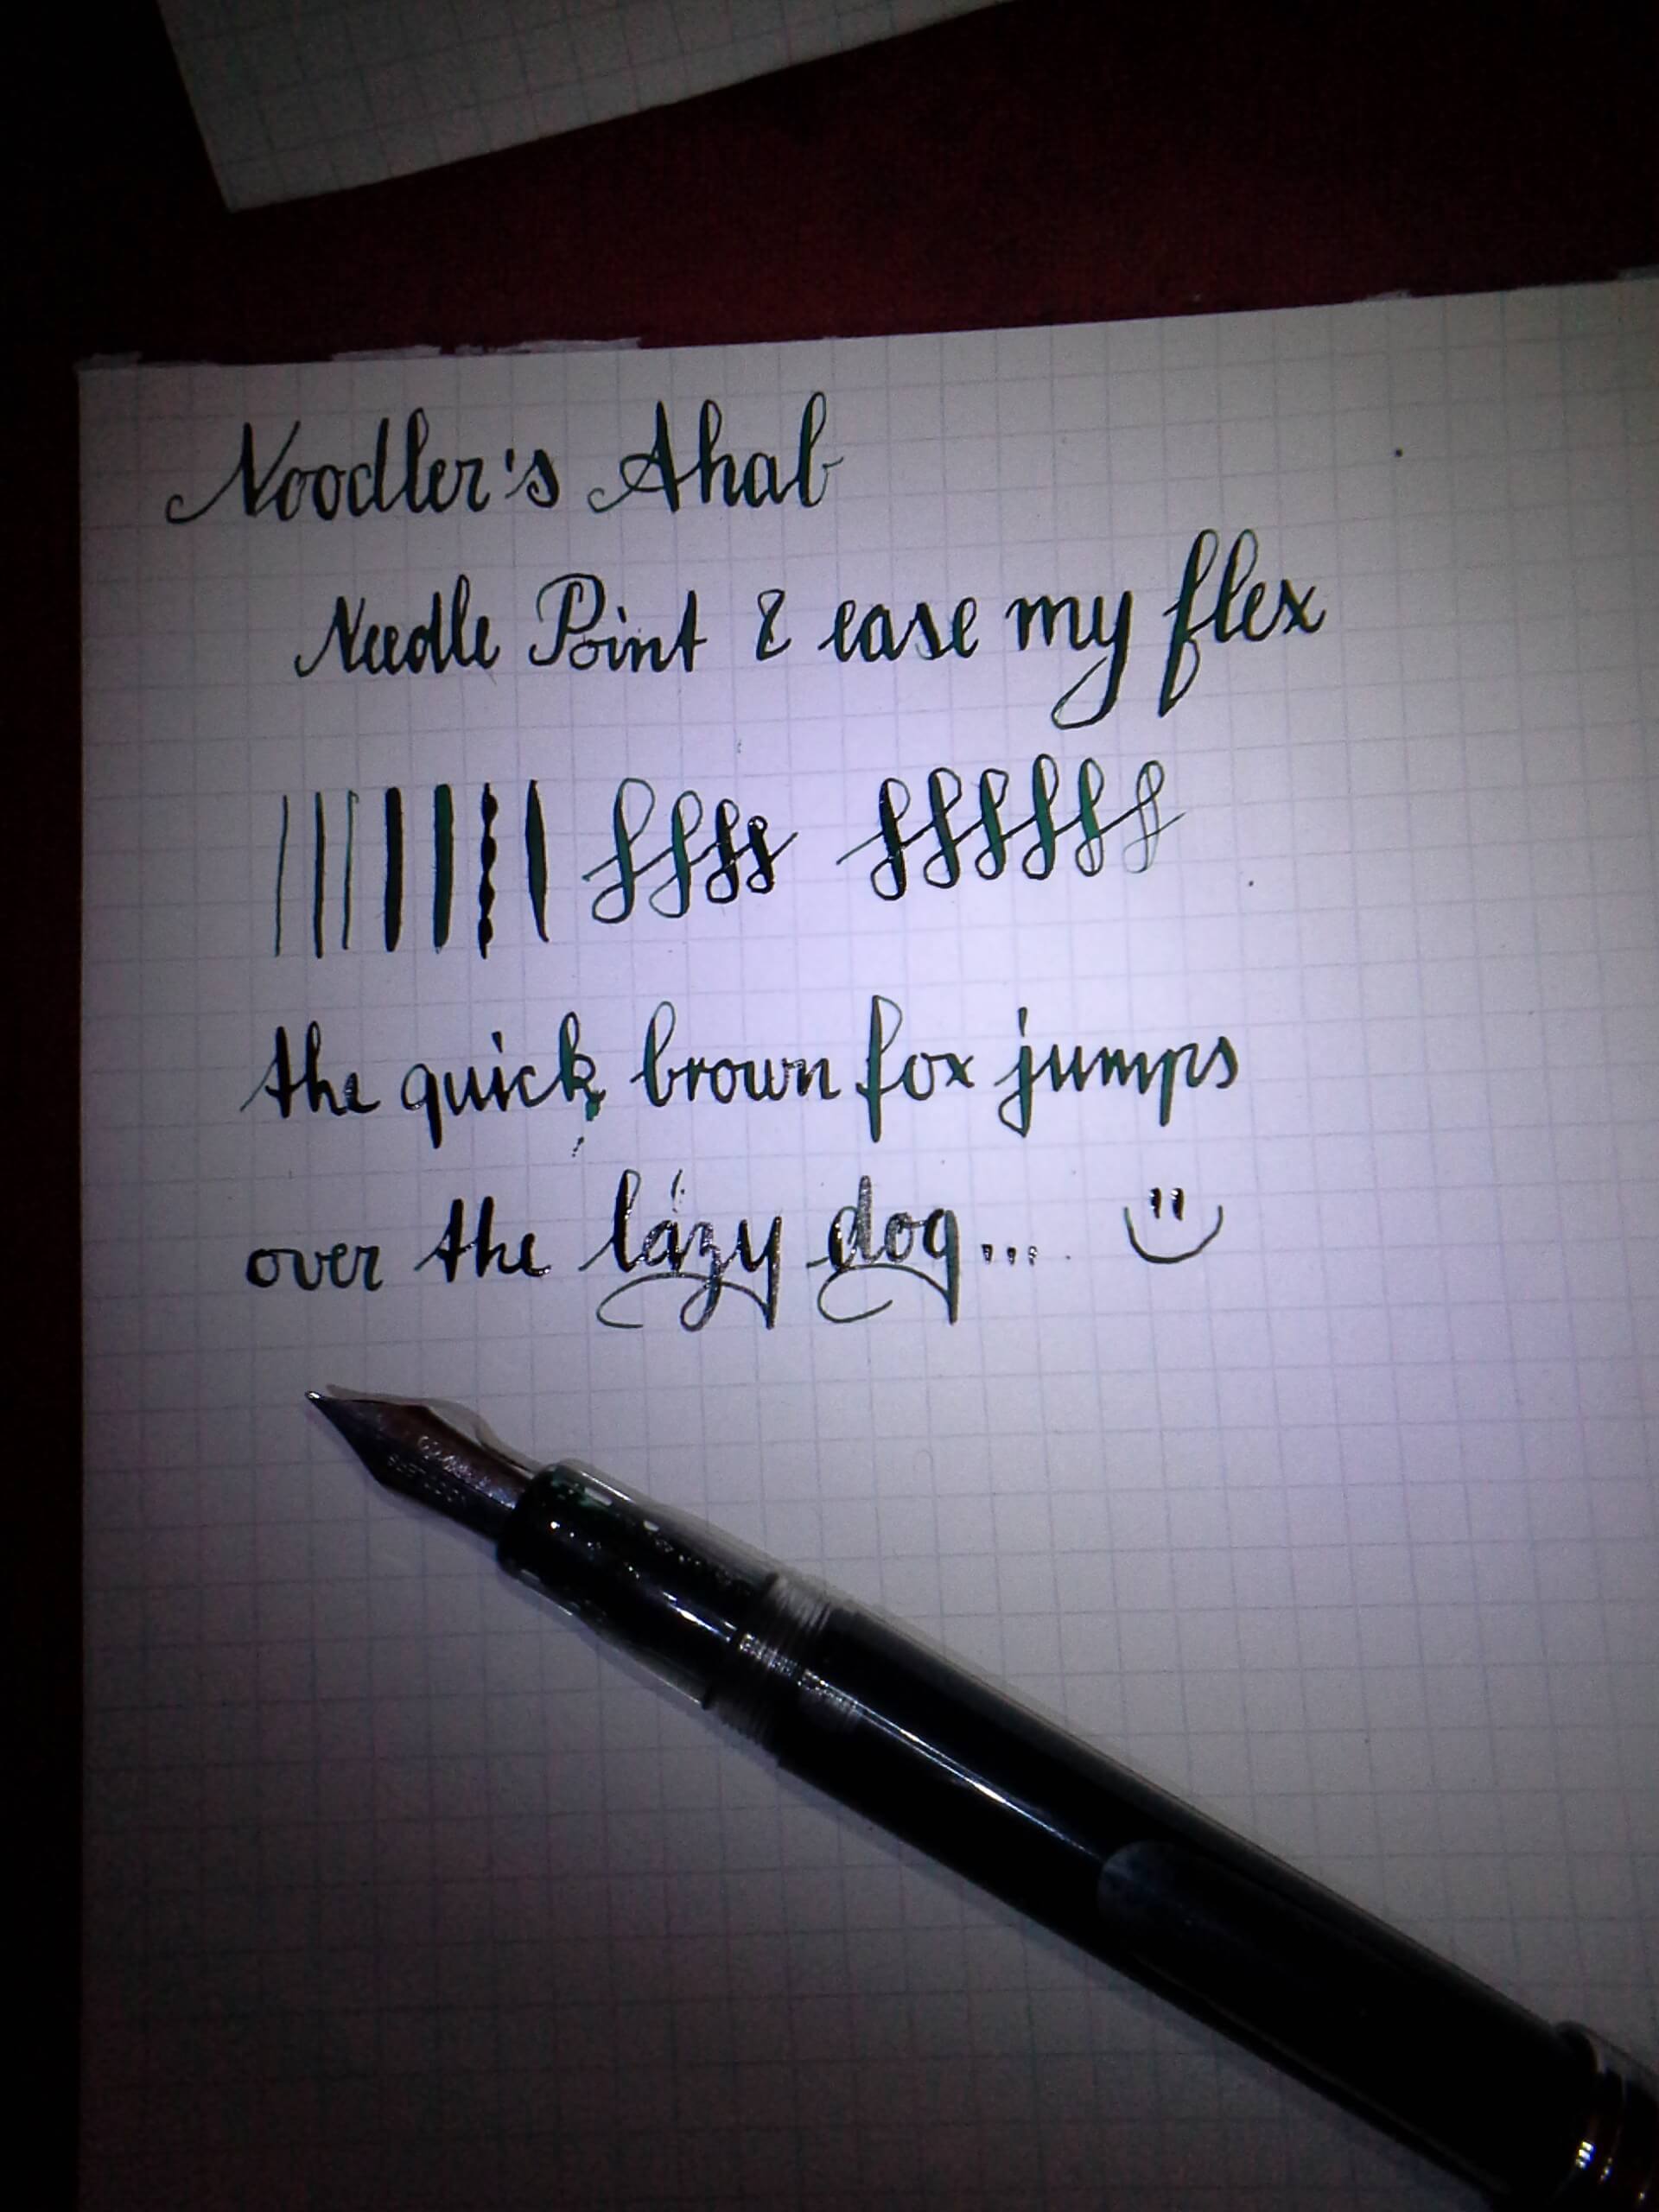 Noodler's Ahab
Needle Point & ease my flex
the quick brown fox jumps
over the lazy dog...